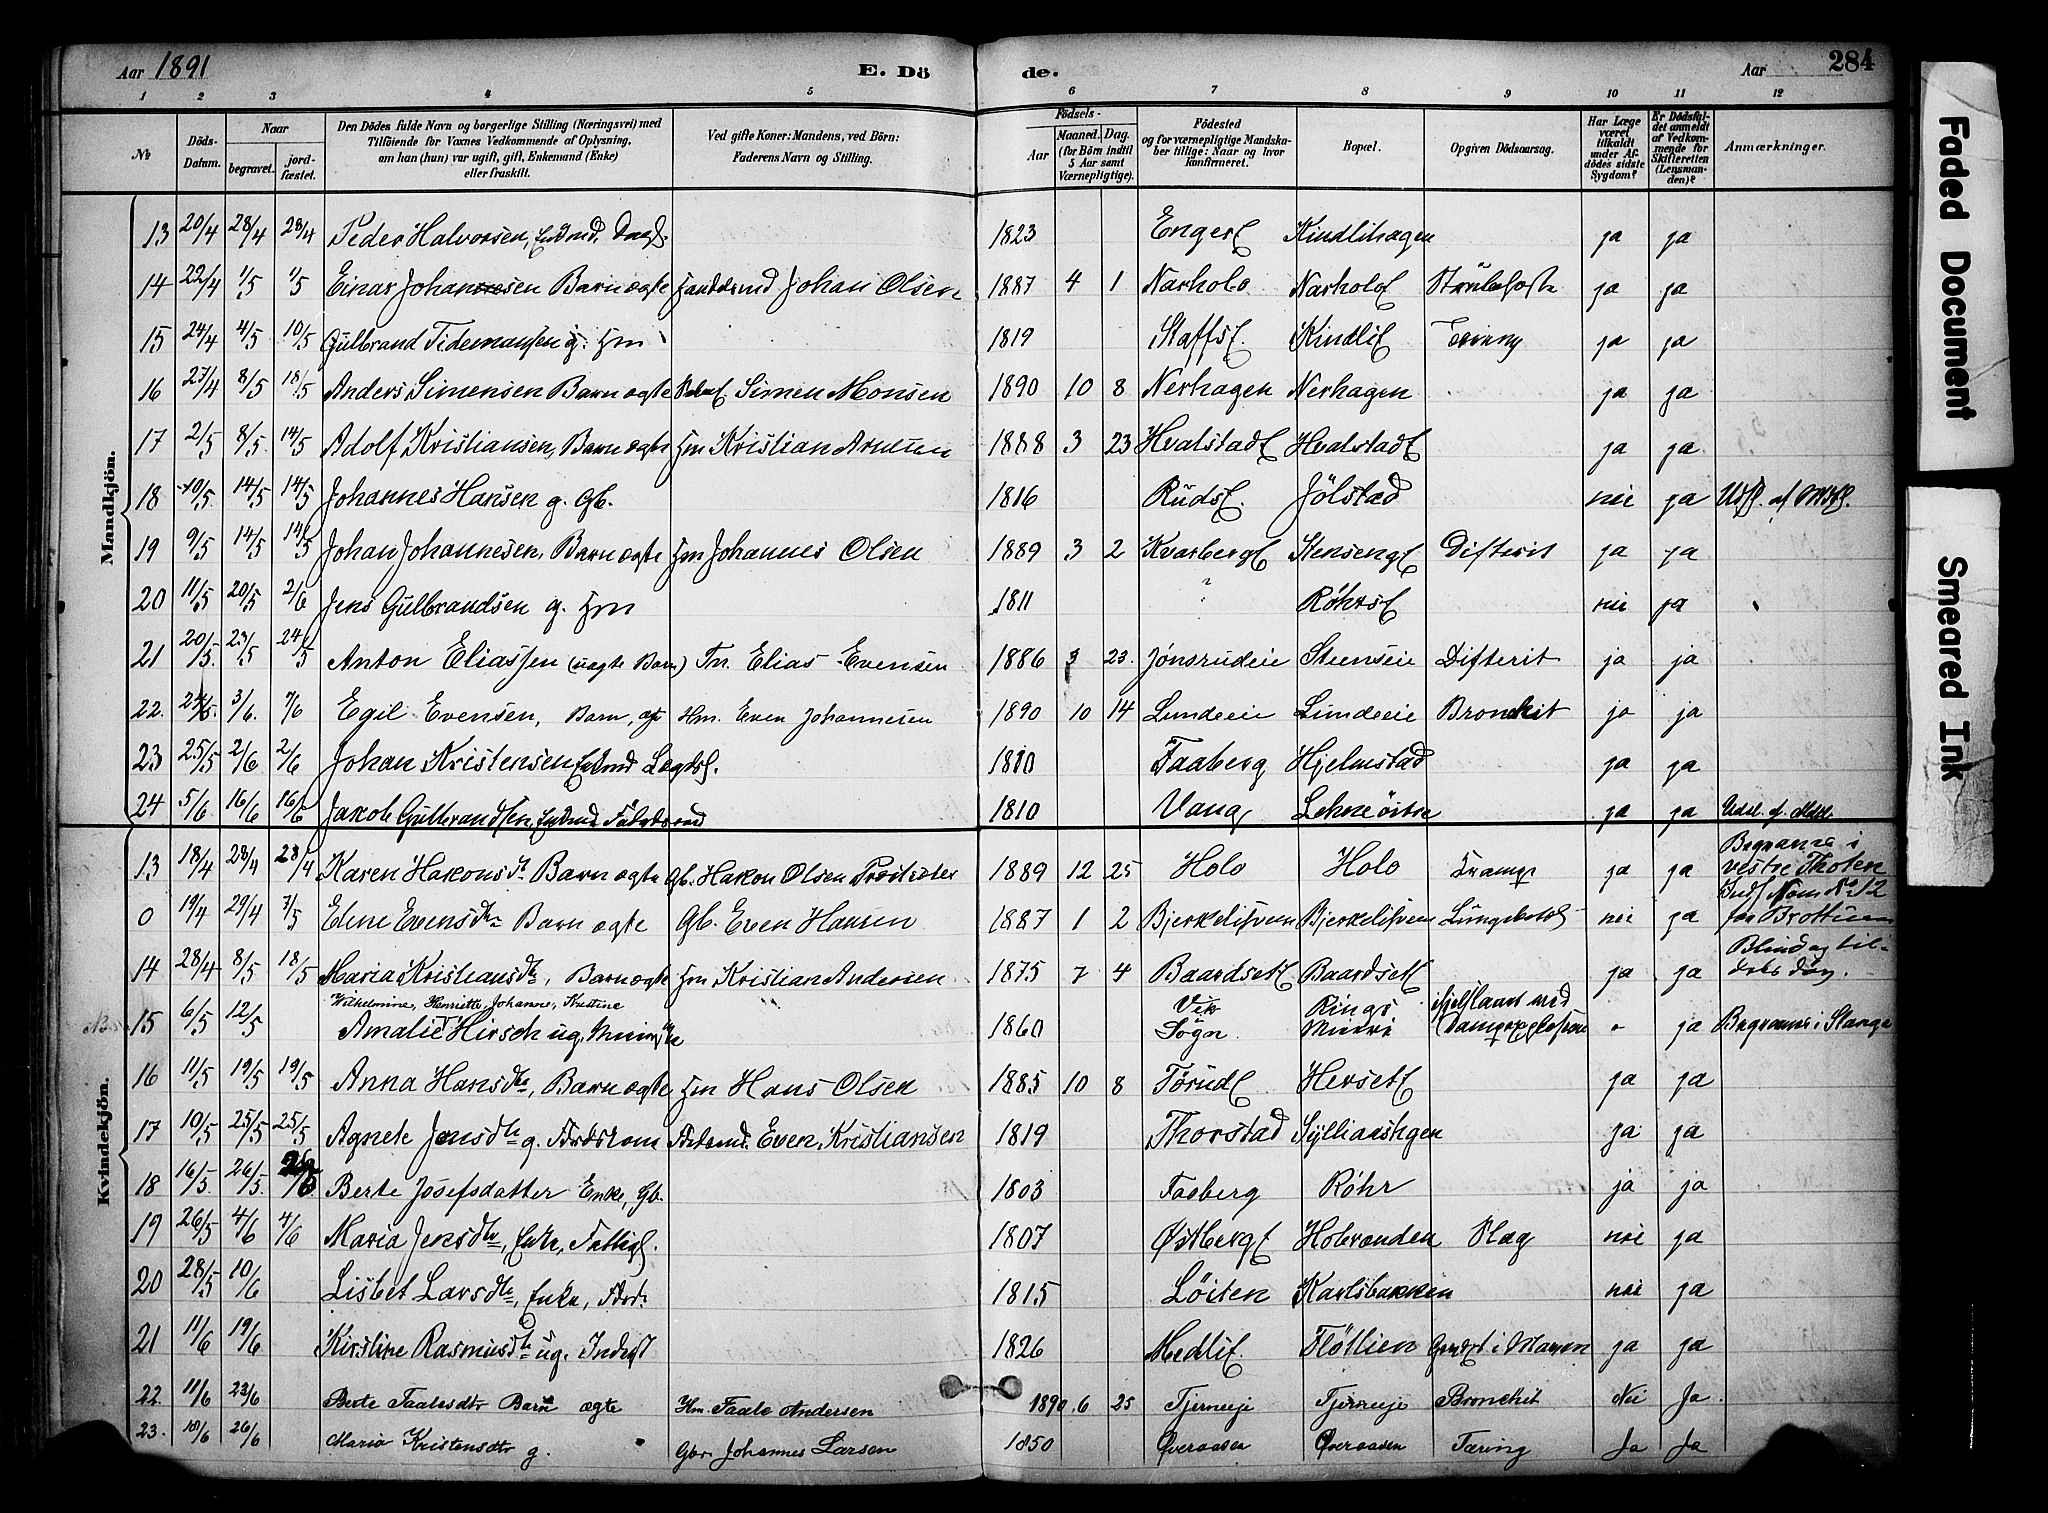 Aar 1891 E. Dö de. Aar 284
1 2 3 4 5 6 7 8 9 10 11 12
No Döds-Datum. Naar begravet. jordfæstet. Den Dödes fulde Navn og borgerlige Stilling (Næringsvei) med Tilföiende for Voxnes Vedkommende af Oplysning, om han (hun) var ugift, gift, Enkemand (Enke) eller fraskilt. Ved gifte Koner: Mandens, ved Börn: Faderens Navn og Stilling. Födsels- Aar Maaned. Dag. (for Börn indtil 5 Aar samt Værnepligtige). Födested og for værnepligtige Mandskaber tillige: Naar og hvor konfirmeret. Bopæl. Opgiven Dödsaarsag. Har Læge været tilkaldt under Afdödes sidste Sygdom? Er Dödsfaldet anmeldt af Vedkommende for Skifteretten (Lensmanden)? Anmærkninger.
Mandkjön.
13 20/4 28/4 28/4 Peder Halvorsen, 1823 Engerf Kindlihagen ja ja
14 22/4 1/5 1/5 Einar Johannesen Barn ægte Johan Olsen 1887 4 1 Narholo Narholof Strubehoste ja ja
15 24/4 4/5 10/5 Gulbrand Tidemansen g. Hm 1819 Staffsf. Kindlif ja ja
16 27/4 8/5 18/5 Anders Simensen Barn ægte Simen Monsen 1890 10 8 Nerhagen Nerhagen ja ja
17 2/5 8/5 14/5 Adolf Kristiansen, Barn ægte Hm Kristian 1888 3 23 Hvalstadf Hvalstadf ja ja
18 10/5 14/5 14/5 Johannes Hansen g. Gb. 1816 Rudsf. Jölstad nei ja Udfl. af
19 9/5 14/5 14/5 Johan Johannesen, Barn ægte Hm Johannes Olsen 1889 3 2 Kvarbergf Stensengf Difterit ja ja
20 11/5 20/5 2/6 Jens Gulbrandsen g. Hm 1811 ? Röhrsf nei ja
21 20/5. 23/5 24/5 Anton Eliassen (uægte Barn) Fm. Elias Evensen 1886 3 23. Jønsrudeie Steinseie Difterit ja ja
22. 24/5. 3/6. 7/6 Egil Evensen, Barn, æg Hm. Even Johannesen 1890 10 14 Lundeeie Lundeeie Bronchit ja ja
23 25/5 2/6 2/6 Johan Kristensen Enkmd Lægdsl. 1810 Faaberg Hjelmstad ja ja
24 5/6 16/6 16/6 Jakob Gulbrandsen, Enkmd 1810 Vang Lehne östre ja ja
Kvindekjön.
13 18/4 28/4 28/4 Karen Hakonsdtr Barn ægte Gb. Hakon Olsen 1889 12 25 Holo Holo Krampe ja ja Begravne i vestre Thoten
0 19/4 29/4 7/5 Elene Evensdtr Barn ægte Gb. Even Hansen 1887 1 2 Bjerkelisveen Bjerkelisveen nei ja No 12 for Brottum
14 28/4 8/5 18/5 Maria Kristiansdtr, Barn ægte Hm Kristian Andersen 1875 7 4 Baardsetf Baardsetf ja ja Blind og
15 6/5 12/5 Wilhelmine, Henriette, Johanne, Kristine Amalie Hirsch ug. 1860 Vik Sogn Rings Minne ja i Stange
16 11/5 19/5 19/5 Anna Hansdtr, Barn ægte Hm Hans Olsen 1885 10 8 Törudf Hersetf ja ja
17 10/5 25/5 25/5 Agnete Jensdtr g. Even Kristiansen 1819 Thorstad ja ja
18 16/5. 26/5. Berte Josefsdatter Enke, Gb. 1803 Faaberg Röhr ja ja
19 26/5 4/6 4/6 Maria Jensdtr, Enke, Fattigl. 1807 Østbergf Holoranden Slag nei ja
20 28/5 10/6 Lisbet Larsdtr, Enke, 1815 Löiten Karlsbakken nei ja
21 11/6 19/6 Kirstine Rasmusdtr ug. Inderst 1826 Medlif. Flötlien ja ja
22. 11/6 23/6 Berte Faalesdtr Barn ægte Hm. Faale Andersen 1890. 6 25 Tjerneeje Tjerneeje Bronchit Nei Ja
23. 18/6 26/6 Maria Kristensdtr g. Gbr. Johannes Larsen 1850 Øveraasen Øveraasen Tæring Ja Ja
Faded Document
Smeared Ink